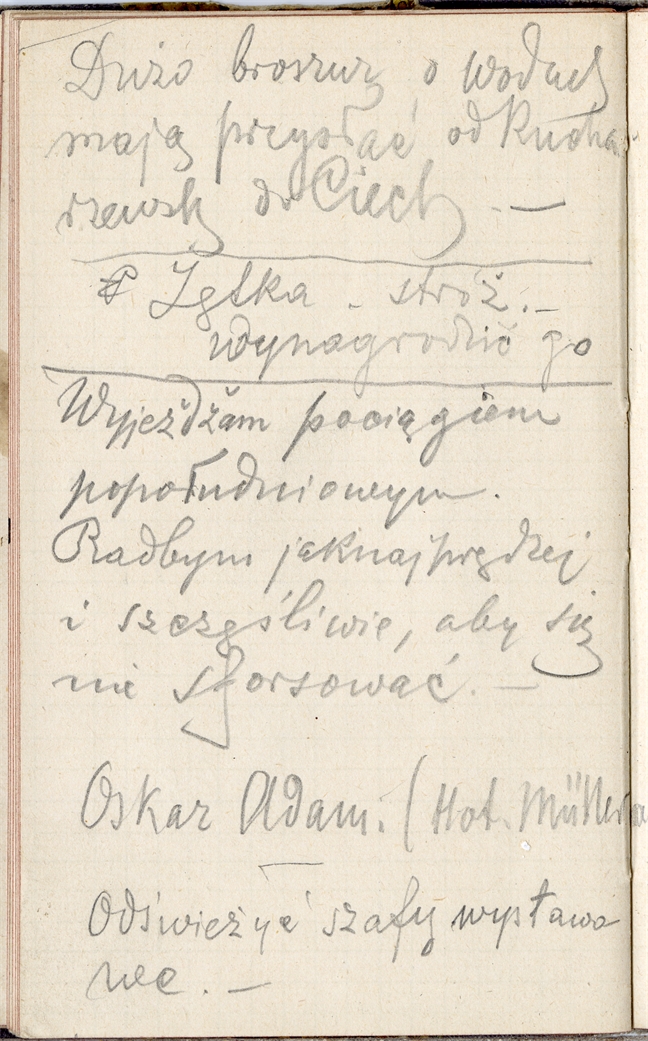 Dużo broszur o wodach
mają przysłać od Kucha
rzewsk do Ciech –
Igłka - stróż.-
wynagrodzić go
Wyjeżdżam pociągiem
popołudniowym.
Radbym jaknajprędzej
i szczęśliwie, aby się
nie sforsować. –
Oskar Adam: (Hot. Müllera
Odświeżyć szafy wystawo
we. –